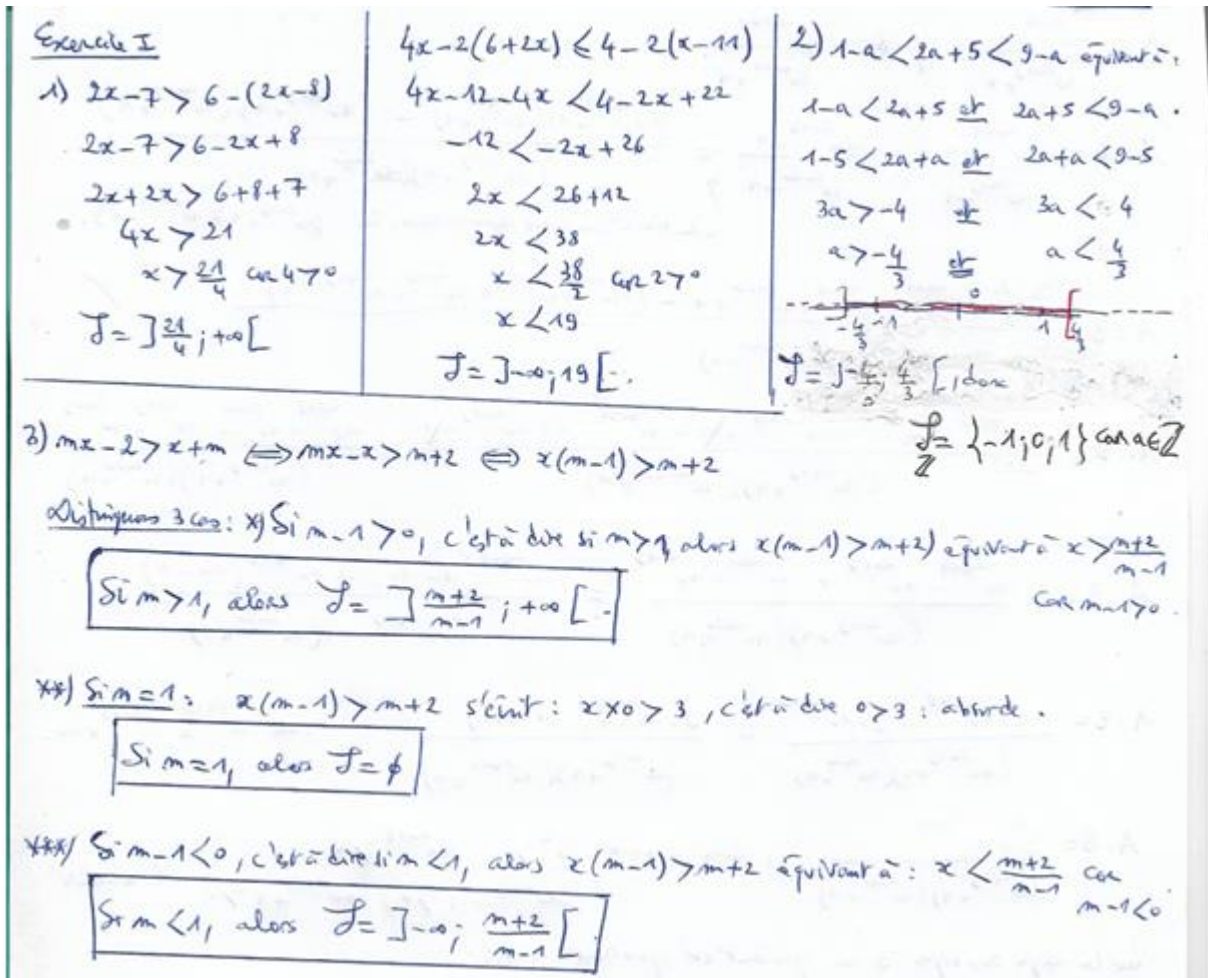 Exercice I
1) 2x-7 > 6-(2x-8)
2x-7 > 6-2x+8
2x+2x > 6+8+7
4x > 21
x > 21/4 car 4>0
S = ]21/4 ; +∞[
4x-2(6+2x) ≤ 4-2(x-11)
4x-12-4x < 4-2x+22
-12 < -2x+26
2x < 26+12
2x < 38
x < 38/2 car 2>0
x < 19
S = ]-∞; 19[.
2) 1-a < 2a+5 < 9-a équivaut à:
1-a < 2a+5 et 2a+5 < 9-a.
1-5 < 2a+a et 2a+a < 9-5
3a > -4 et 3a < 4
a > -4/3 et a < 4/3
-4/3 -1 0 1 4/3
S = ]-4/3; 4/3[, donc
S_ℤ = {-1; 0; 1} car a∈ℤ
3) mx-2 > x+m ⟺ mx-x > m+2 ⟺ x(m-1) > m+2
Distinguons 3 cas: *) Si m-1 > 0, c'est à dire si m>1, alors x(m-1) > m+2) équivaut à x > m+2/m-1
car m-1>0.
Si m>1, alors S = ]m+2/m-1 ; +∞[.
**) Si m=1: x(m-1) > m+2 s'écrit: x×0 > 3, c'est à dire 0>3: absurde.
Si m=1, alors S = ϕ
***) Si m-1<0, c'est à dire si m<1, alors x(m-1) > m+2 équivaut à: x < m+2/m-1 car
m-1<0
Si m<1, alors S = ]-∞; m+2/m-1[